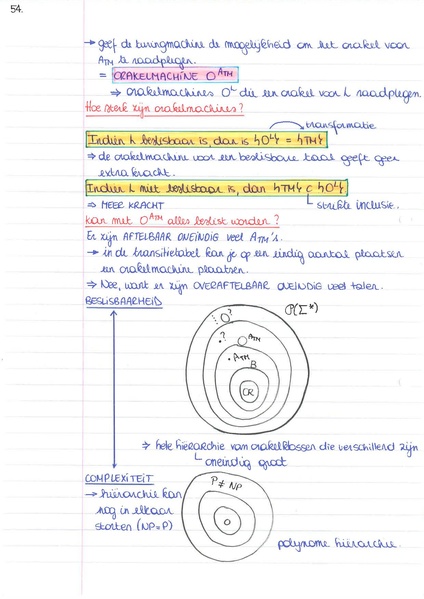 54.
→ geef de turingmachine de mogelijkheid om het orakel voor
ATM te raadplegen.
= ORAKELMACHINE O^ATM
⇒ orakelmachines O^L die een orakel voor L raadplegen.
Hoe sterk zijn orakelmachines?
transformatie
Indien L beslisbaar is, dan is {O^L} = {TM}
⇒ de orakelmachine voor een beslisbare taal geeft geen
extra kracht.
Indien L niet beslisbaar is, dan {TM} ⊂ {O^L}
⇒ MEER KRACHT
strikte inclusie.
kan met O^ATM alles beslist worden?
Er zijn AFTELBAAR ONEINDIG veel ATM's.
→ in de transitietabel kan je op een eindig aantal plaatsen
een orakelmachine plaatsen.
⇒ Nee, want er zijn OVERAFTELBAAR ONEINDIG veel talen.
BESLISBAARHEID
P(Σ*)
O?
.?
O^ATM
. ATM
B
CR
⇒ hele hiërarchie van orakelklassen die verschillend zijn
oneindig groot
COMPLEXITEIT
→ hiërarchie kan
nog in elkaar
storten (NP=P)
P ≠ NP
polynome hiërarchie.